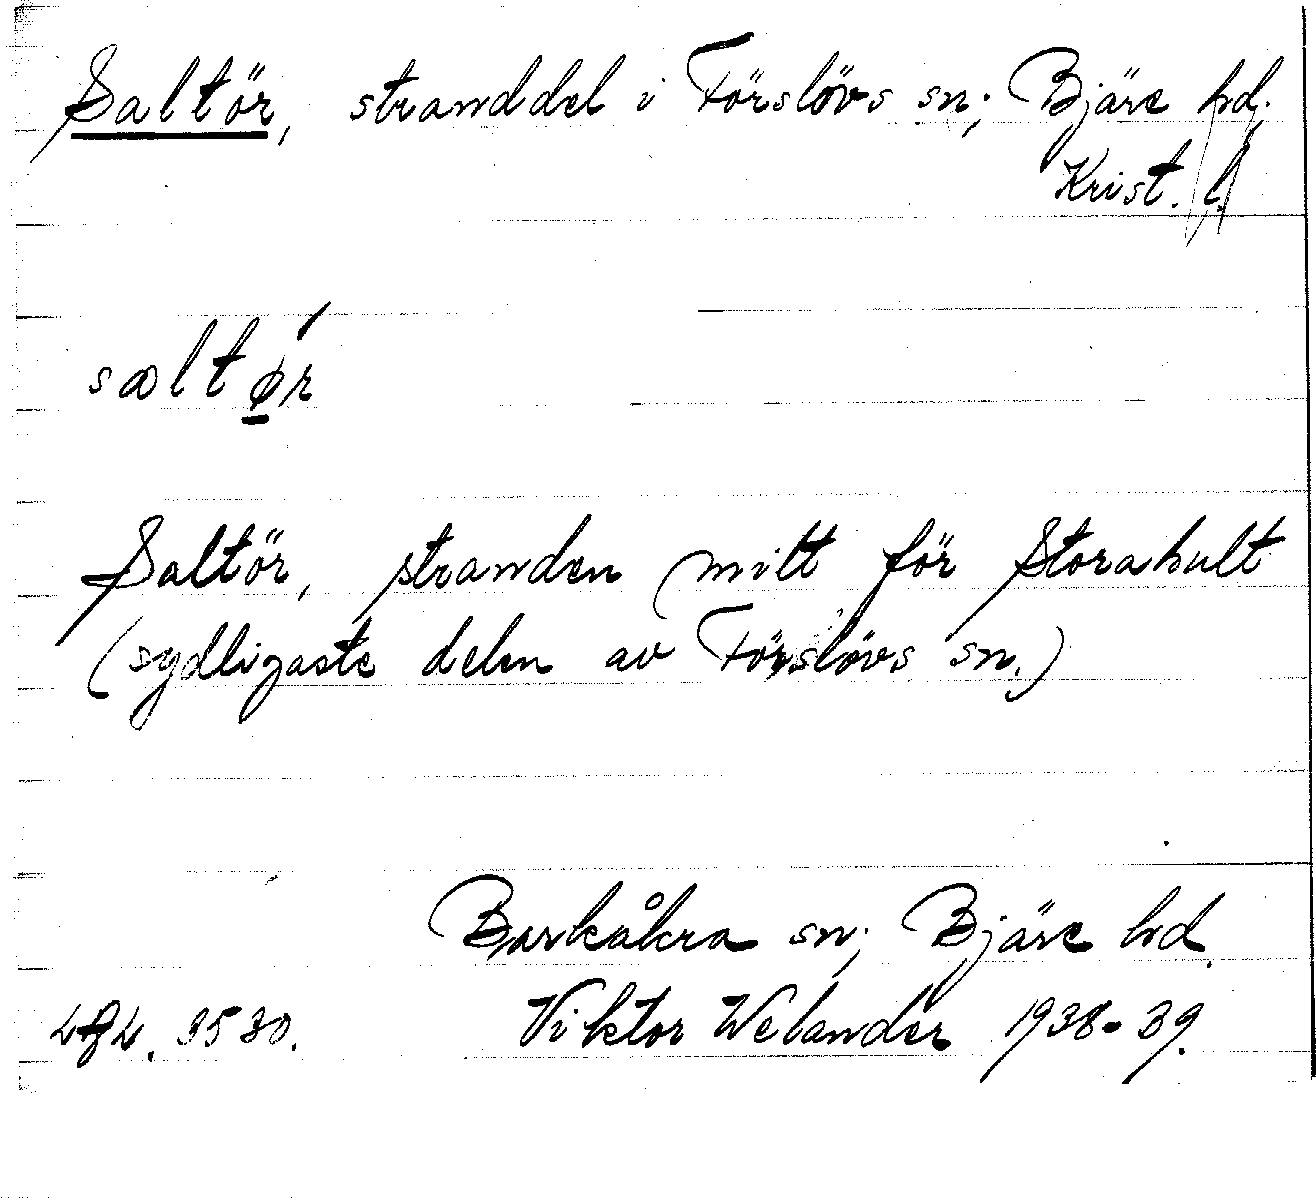 Saltör, stranddel i Förslövs sn; Bjäre hd;
Krist. l.
sæltǿr
Saltör, stranden mitt för Storahult
(sydligaste delen av Förslövs sn.)
Barkåkra sn; Bjäre hd.
3530. Viktor Welander 1938-39.